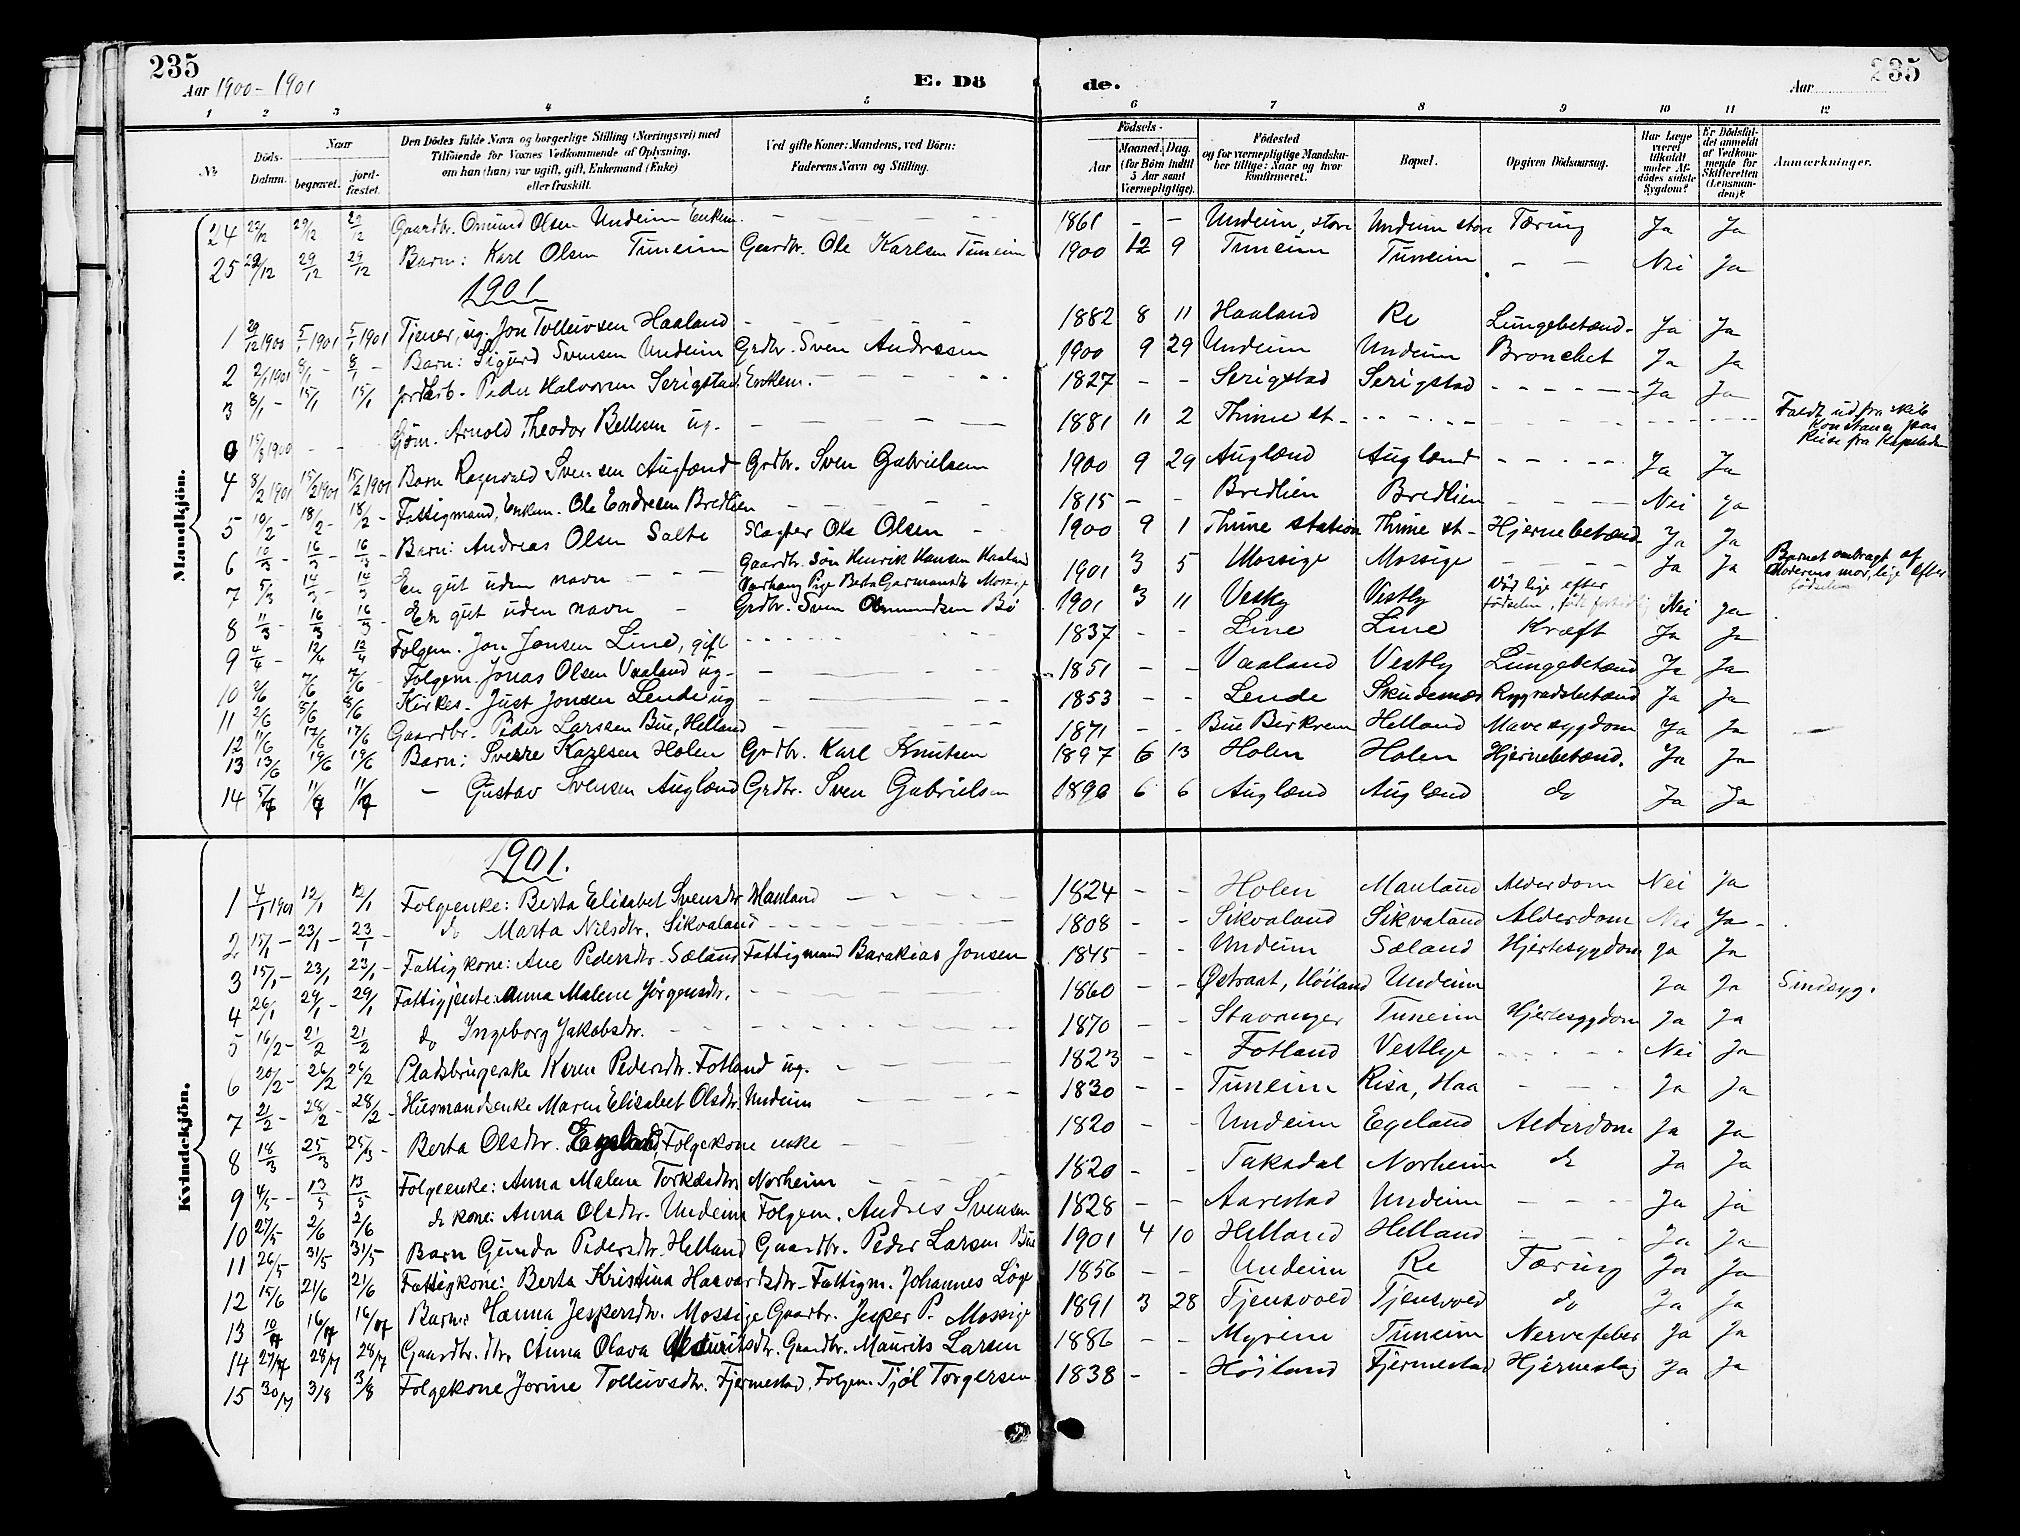 235
Aar 1900-1901
E. Dö
de.
Aar
235
1 2 3 4 5 6 7 8 9 10 11 12
No
Döds-Datum.
Naar
begravet.
jord-fæstet.
Den Dödes fulde Navn og borgerlige Stilling (Næringsvei) med
Tilföiende for Voxnes Vedkommende af Oplysning,
om han (hun) var ugift, gift, Enkemand (Enke)
eller fraskilt.
Ved gifte Koner: Mandens, ved Börn:
Faderens Navn og Stilling.
Födsels-
Aar
Maaned. Dag.
(for Börn indtil
5 Aar samt
Værnepligtige).
Födested
og for værnepligtige Mandska-
ber tillige: Naar og hvor
konfirmeret.
Bopæl.
Opgiven Dödsaarsag.
Har Læge
været
tilkaldt
under Af-
dödes sidste
Sygdom?
Er Dödsfal-
det anmeldt
af Vedkom-
mende for
Skifteretten
(Lensman-
den)?
Anmærkninger.
Mandkjön.
24 29/12 29/12 Gaardbr. Omund Olsen Undeim Enkem. - 1861 - - Undeim, store Undeim store Tæring Ja Ja
25 22/12 29/12 29/12 Barn: Karl Olsen Tuneim Gaardbr. Ole Karlsen Tuneim 1900 12 9 Tuneim Tuneim - - Nei Ja
1901
1 29/12 1900 5/1 1901 5/1 1901 Tjener, ug. Jon Tolleivsen Haaland - 1882 8 11 Haaland Re Lungebetænd. Ja Ja
2 2/1 1901 8/1 - 8/1 - Barn: Sigurd Svensen Undeim Grdbr. Sven Andreasen 1900 9 29 Undeim Undeim Bronchet Ja Ja
3 8/1 - 15/1 15/1 Peder Halvorsen Serigstad Enkem. - 1827 - - Serigstad Serigstad - Ja Ja
15/3 1900 - - Gjøm. Arnold Theodor Bellesen ug. - 1881 11 2 Thime st. - - Faldt ud fra skib Konstanse paa Reise fra
4 8/2 1901 15/2 1901 15/2 1901 Barn Ragnvald Svensen Auglænd Grdbr. Sven Gabrielsen 1900 9 29 Auglænd Auglænd - Ja Ja
5 10/2 - 18/2 - 18/2 - Fattigmand, Enkem. Ole Endresen Bredlien - 1815 - - Bredlien Bredlien - Nei Ja
6 10/3 - 16/3 - 16/3 Barn: Andreas Olsen Salte Slagter Ole Olsen - 1900 9 1 Thime station Thime st- Hjernebetænd. Ja Ja
7 5/3 En gut uden navn - Gaardbr. Søn Henrik Hansen Haaland Varhaug Pige Berta Garmansdtr Mossige 1901 3 5 Mossige Mossige - Ja Ja Barnet ombragt af Moderens mor, lige efter födselen
8 11/3 16/3 - 16/3 En gut uden navn - Grdbr. Sven Osmundsen Bö 1901 3 11 Vesly Vestly Död lige efter födselen, Nei Ja
9 4/4 - 12/4 12/4 Folgem. Jon Jonsen Line, gift - 1837 - - Line Line Kræft Ja Ja
10 2/6 7/6 7/6 - Folgem. Jonas Olsen Vaaland ug. - 1851 - - Vaaland Vestly Lungebetænd Ja Ja
11 2/6 8/6 8/6 Kirkes. Just Jonsen Lende ug - 1853 - - Lende Skudenæs Rygradsbetænd Ja Ja
12 11/6 17/6 17/6 Gaardbr. Peder Larssen Bue, Helland - 1871 - - Bue Birkrem Helland Mavesygdom Ja Ja
13 13/6 19/6 19/6 Barn: Sverre Karlsen Holen Grdbr. Karl Knutsen 1897 6 13 Holen Holen Hjernebetænd. Ja Ja
14 5/7 11/7 11/7 - Gustav Svensen Auglænd Grdbr. Sven Gabrielsen 1890 6 6 Auglænd Auglænd do Ja Ja
Kvindekjön.
1901.
1 4/1 1901 12/1 12/1 Folgeenke: Berta Elisabet Svensdtr Hauland - 1824 - - Holen Mauland Alderdom Nei Ja
2 15/1 - 23/1 - 23/1 - do Marta Nilsdtr. Sikvaland - 1808 - - Sikvaland Sikvaland Alderdom Nei Ja -
3 15/1 - 23/1 23/1 - Fattigkone: Ane Pedersdtr. Sæland Fattigmand Barakias Jonsen 1845 - - Undeim Sæland Hjertesygdom Ja Ja
4 26/1 29/1 - 29/1 Fattigjente: Anna Malene Jörgensdtr. - 1860 - - Østraat, Höiland Undeim Ja Ja Sindsyg.
5 16/2 - 21/2 21/2 do Ingeborg Jakobsdtr. - 1870 - - Stavanger Tuneim Hjertesygdom Ja Ja
6 20/2 - 26/2 26/2 Pladsbrugerske Karen Pedersdtr. Fotland ug. - 1823 - - Fotland Vestlye - Nei Ja
7 21/2 - 28/2 - 28/2 - Husmandsenke Maren Elisabet Olsdtr. Undeim - 1830 - - Tuneim Risa, Haa - Ja Ja
8 18/3 25/3 25/3 - Berta Olsdtr. Egeland, Folgekone enke - 1820 - - Undeim Egeland Alderdom Ja Ja
9 4/5 - 13/5 13/5 Folgeenke: Anna Malene Torkæsdtr Norheim - 1820 - - Taksdal Norheim do Ja Ja
10 27/5 2/6 2/6 do kone: Anna Olsdtr. Undeim Folgem. Andres Svensen 1828 - - Aarestad Undeim - Ja ja
11 26/5 31/5 31/5 Barn Gunda Pedersdtr. Helland Gaardbr. Peder Larsen Bue 1901 4 10 Helland Helland - Ja Ja
12 15/6 21/6 21/6 Fattigkone: Berta Kristina Haavardsdtr- Fattigm. Johannes Löge 1856 - - Undeim Re Tæring Ja Ja
13 10/7 16/7 16/7 Barn: Hanna Jespersdtr. Mossige Gaardbr. Jesper P. Mossige 1891 3 28 Tjensvold Tjensvold do Ja Ja
14 27/7 28/7 28/7 Gaardbr. dtr. Anna Olava Mauritsdtr. Gaardbr. Maurits Larsen 1886 - - Myrene Tuneim Nervefeber Ja Ja
15 30/7 3/8 3/8 Folgekone Jorine Tolleivsdtr. Fjermestad, Folgem. Tjöl Torgersen 1838 - - Höiland Fjermestad Hjerneslag Ja Ja